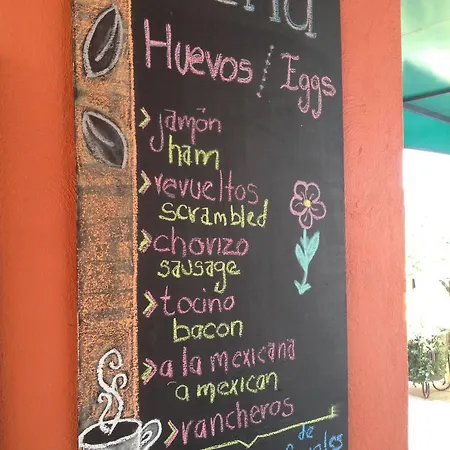 Huevos / Eggs
> jamón
ham
> revueltos
scrambled
> chorizo
sausage
> tocino
bacon
> a la mexicana
a mexican
> rancheros
de